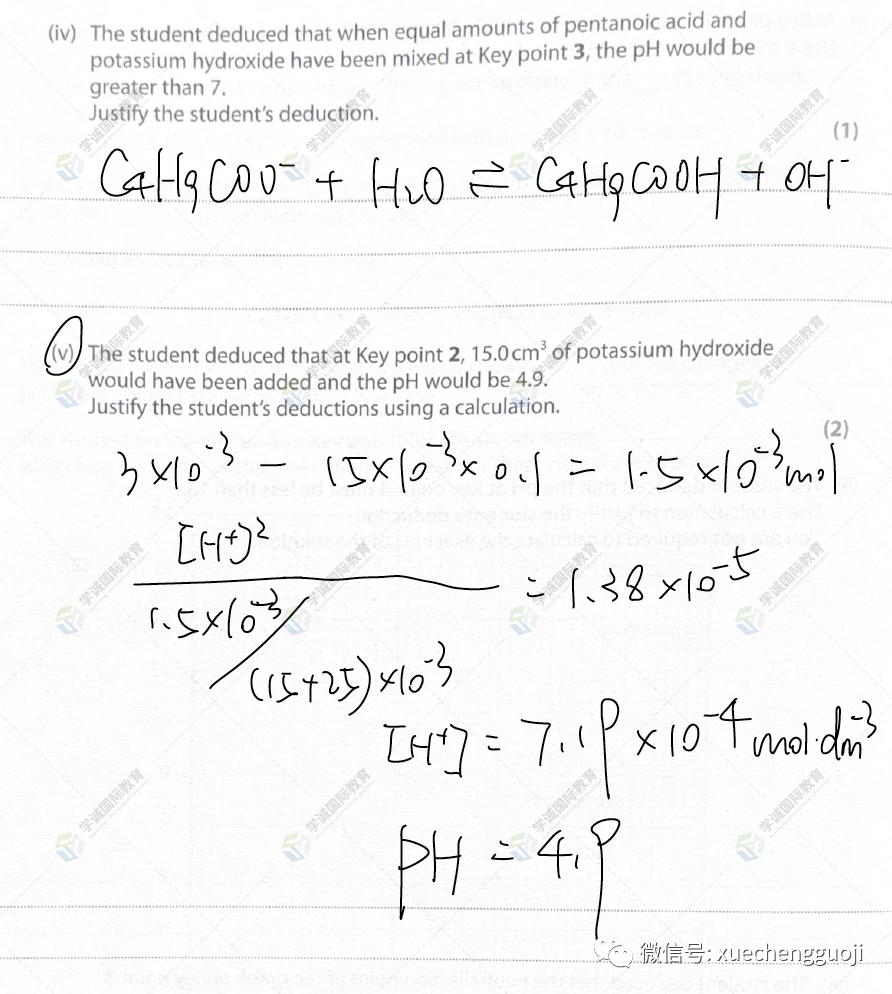 (iv) The student deduced that when equal amounts of pentanoic acid and
potassium hydroxide have been mixed at Key point 3, the pH would be
greater than 7.
Justify the student's deduction.
(1)
C4H9COO⁻ + H2O ⇌ C4H9COOH + OH⁻
(v) The student deduced that at Key point 2, 15.0 cm³ of potassium hydroxide
would have been added and the pH would be 4.9.
Justify the student's deductions using a calculation.
(2)
3×10⁻³ − 15×10⁻³×0.1 = 1.5×10⁻³mol
[H⁺]²
= 1.38×10⁻⁵
1.5×10⁻³/
(15+25)×10⁻³
[H⁺] = 7.19×10⁻⁴ mol·dm⁻³
pH = 4.9
学诚国际教育
微信号: xuechengguoji